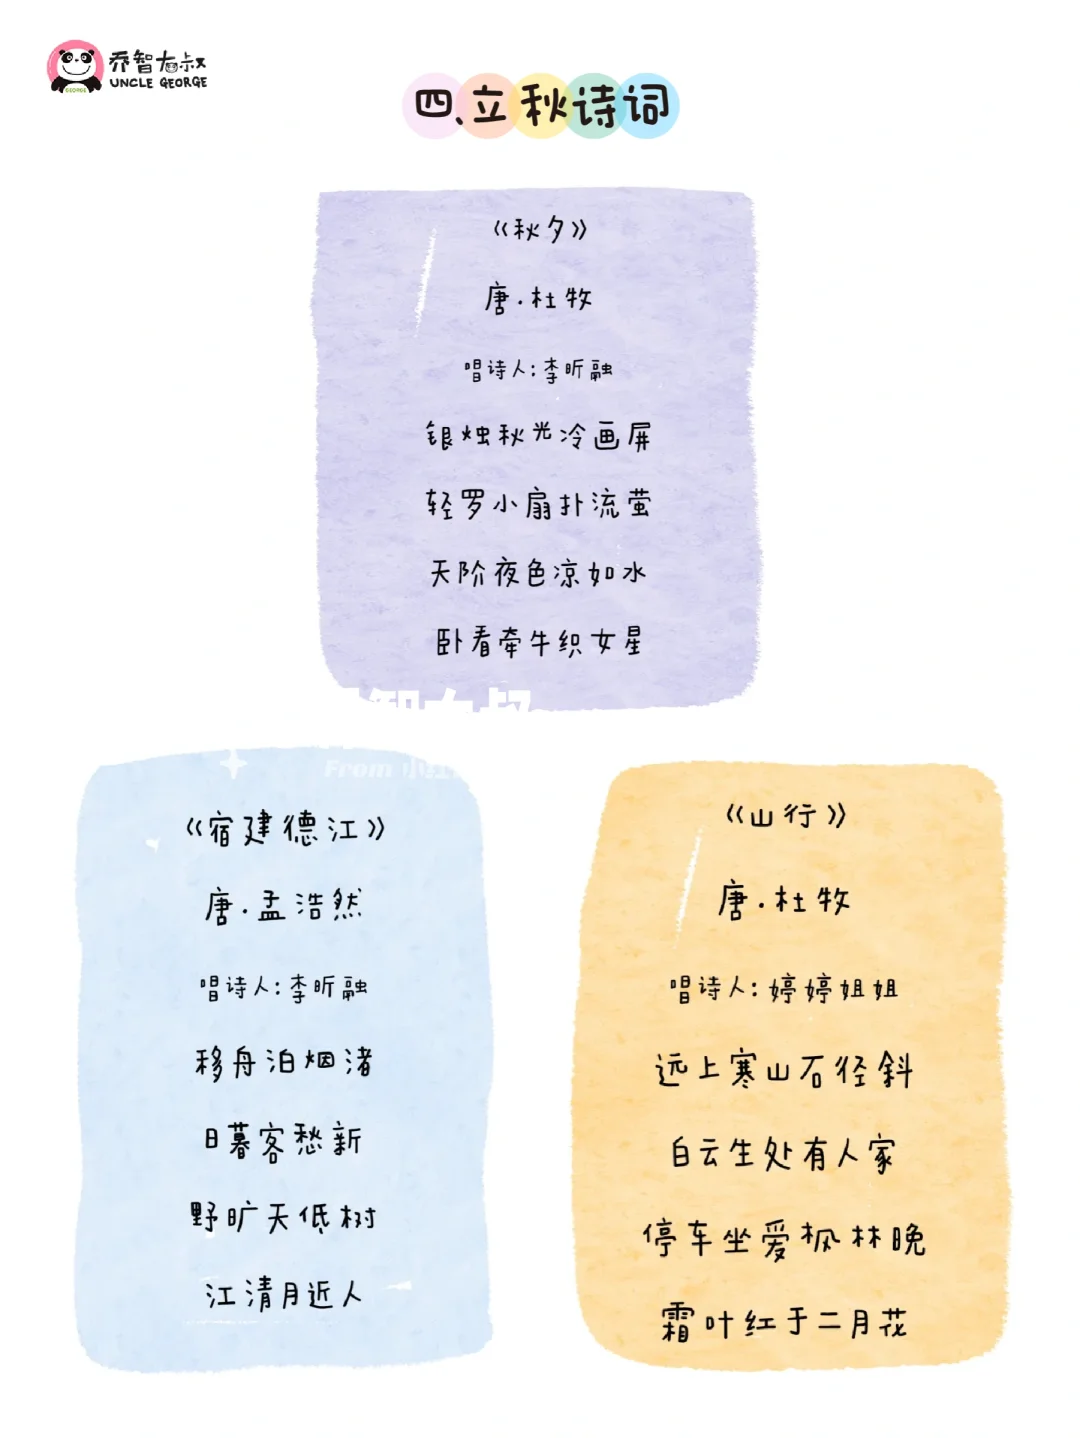 乔智大叔
UNCLE GEORGE
GEORGE
四、立秋诗词
《秋夕》
唐.杜牧
唱诗人:李昕融
银烛秋光冷画屏
轻罗小扇扑流萤
天阶夜色凉如水
卧看牵牛织女星
智大叔
From 小红
《宿建德江》
唐.孟浩然
唱诗人:李昕融
移舟泊烟渚
日暮客愁新
野旷天低树
江清月近人
《山行》
唐.杜牧
唱诗人:婷婷姐姐
远上寒山石径斜
白云生处有人家
停车坐爱枫林晚
霜叶红于二月花